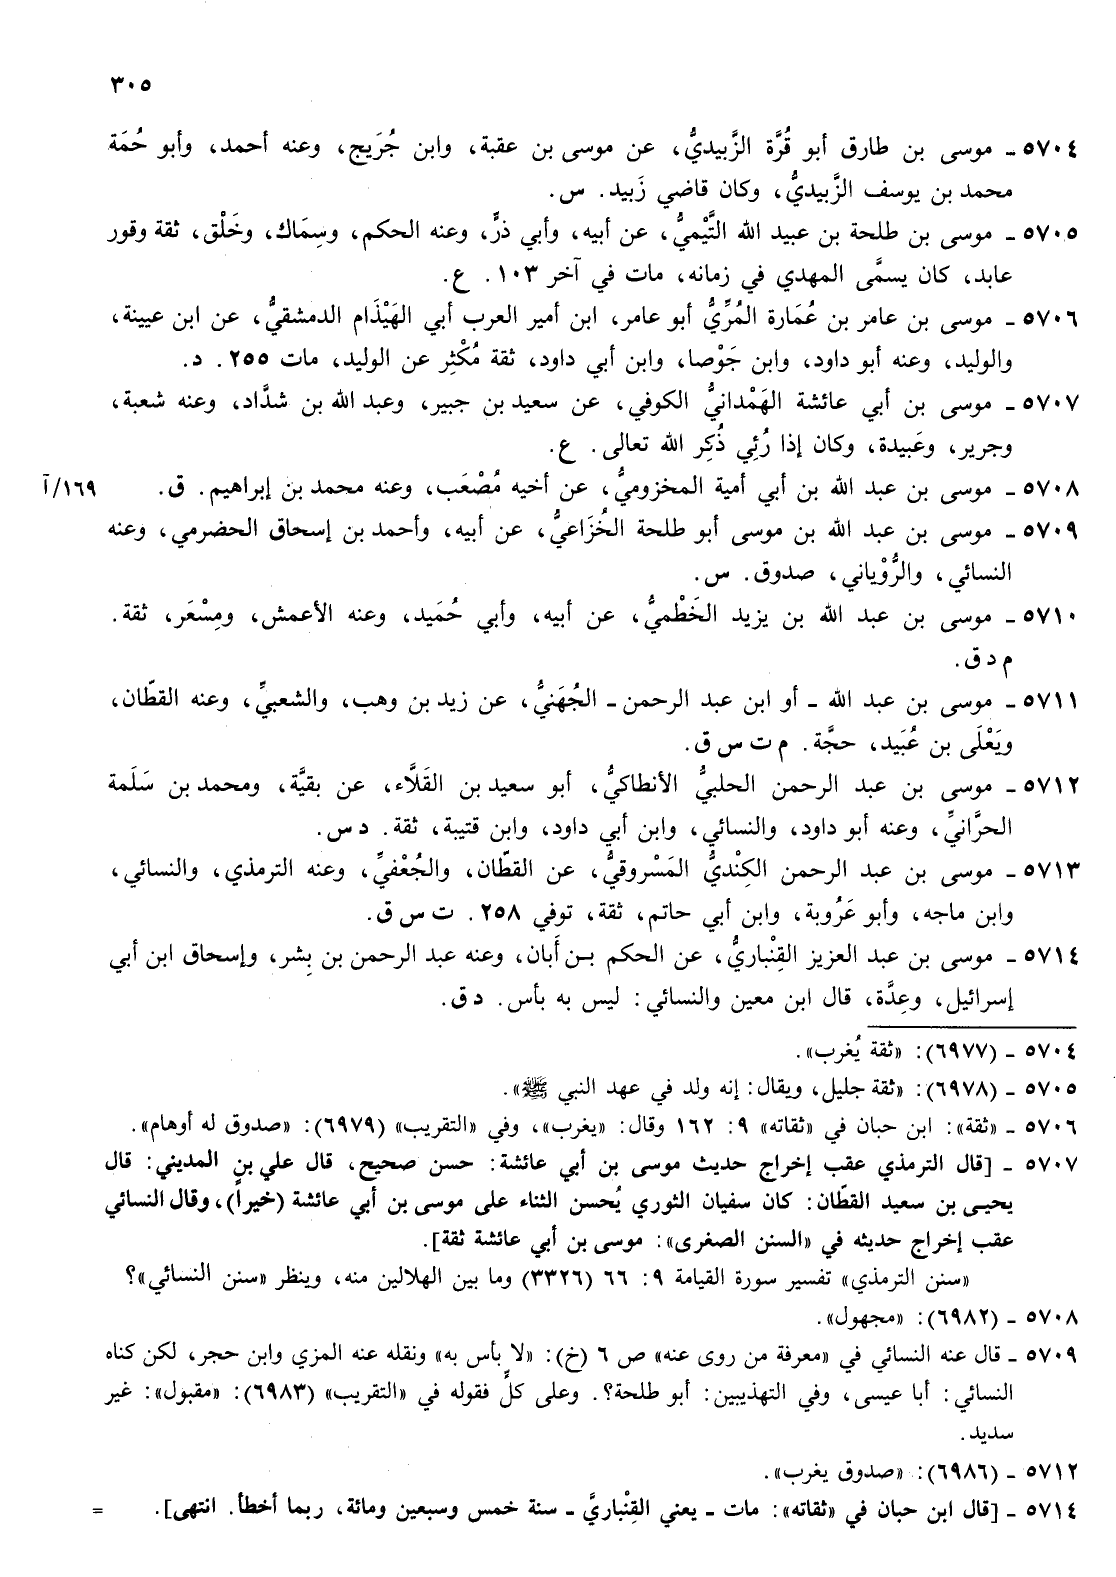 ٣٠٥
٥٧٠٤ ـ موسى بن طارق أبو قُرَّة الزَّبيديُّ، عن موسى بن عقبة، وابن جُرَيج، وعنه أحمد، وأبو حُمَة
محمد بن يوسف الزَّبيديُّ، وكان قاضي زَبيد. س.
٥٧٠٥ ـ موسى بن طلحة بن عبيد الله التَّيْميُّ، عن أبيه، وأبي ذرٍّ، وعنه الحكم، وسِمَاك، وخَلْق، ثقة وقور
عابد، كان يسمَّى المهدي في زمانه، مات في آخر ١٠٣. ع.
٥٧٠٦ ـ موسى بن عامر بن عُمَارة المُرِّيُّ أبو عامر، ابن أمير العرب أبي الهَيْذَام الدمشقيُّ، عن ابن عيينة،
والوليد، وعنه أبو داود، وابن جَوْصا، وابن أبي داود، ثقة مُكْثِر عن الوليد، مات ٢٥٥. د.
٥٧٠٧ ـ موسى بن أبي عائشة الهَمْدانيُّ الكوفي، عن سعيد بن جبير، وعبد الله بن شدَّاد، وعنه شعبة،
وجرير، وعَبيدة، وكان إذا رُئِي ذُكِر الله تعالى. ع.
٥٧٠٨ ـ موسى بن عبد الله بن أبي أمية المخزوميُّ، عن أخيه مُصْعَب، وعنه محمد بن إبراهيم. ق. ١٦٩/آ
٥٧٠٩ ـ موسى بن عبد الله بن موسى أبو طلحة الخُزَاعيُّ، عن أبيه، وأحمد بن إسحاق الحضرمي، وعنه
النسائي، والرُّوْياني، صدوق. س.
٥٧١٠ ـ موسى بن عبد الله بن يزيد الخَطْميُّ، عن أبيه، وأبي حُمَيد، وعنه الأعمش، ومِسْعَر، ثقة.
م د ق.
٥٧١١ ـ موسى بن عبد الله ـ أو ابن عبد الرحمن ـ الجُهَنيُّ، عن زيد بن وهب، والشعبيِّ، وعنه القطّان،
ويَعْلَى بن عُبَيد، حجَّة. م ت س ق.
٥٧١٢ ـ موسى بن عبد الرحمن الحلبيُّ الأنطاكيُّ، أبو سعيد بن القَلَّاء، عن بقيَّة، ومحمد بن سَلَمة
الحرَّانيِّ، وعنه أبو داود، والنسائي، وابن أبي داود، وابن قتيبة، ثقة. د س.
٥٧١٣ ـ موسى بن عبد الرحمن الكِنْديُّ المَسْروقيُّ، عن القطّان، والجُعْفيِّ، وعنه الترمذي، والنسائي،
وابن ماجه، وأبو عَرُوبة، وابن أبي حاتم، ثقة، توفي ٢٥٨. ت س ق.
٥٧١٤ ـ موسى بن عبد العزيز القِنْباريُّ، عن الحكم بـن أَبان، وعنه عبد الرحمن بن بِشر، وإسحاق ابن أبي
إسرائيل، وعِدَّة، قال ابن معين والنسائي: ليس به بأس. د ق.
٥٧٠٤ ـ (٦٩٧٧): «ثقة يُغرب».
٥٧٠٥ ـ (٦٩٧٨): «ثقة جليل، ويقال: إنه ولد في عهد النبي ﷺ».
٥٧٠٦ ـ «ثقة»: ابن حبان في «ثقاته» ٩: ١٦٢ وقال: «يغرب»، وفي «التقريب» (٦٩٧٩): «صدوق له أوهام».
٥٧٠٧ ـ [قال الترمذي عقب إخراج حديث موسى بن أبي عائشة: حسن صحيح، قال علي بن المديني: قال
يحيـى بن سعيد القطّان: كان سفيان الثوري يُحسن الثناء على موسى بن أبي عائشة (خيراً)، وقال النسائي
عقب إخراج حديثه في «السنن الصغرى»: موسى بن أبي عائشة ثقة].
«سنن الترمذي» تفسير سورة القيامة ٩: ٦٦ (٣٣٢٦) وما بين الهلالين منه، وينظر «سنن النسائي»؟
٥٧٠٨ ـ (٦٩٨٢): «مجهول».
٥٧٠٩ ـ قال عنه النسائي في «معرفة من روى عنه» ص ٦ (خ): «لا بأس به» ونقله عنه المزي وابن حجر، لكن كناه
النسائي: أبا عيسى، وفي التهذيبين: أبو طلحة؟. وعلى كلٍّ فقوله في «التقريب» (٦٩٨٣): «مقبول»: غير
سديد.
٥٧١٢ ـ (٦٩٨٦): «صدوق يغرب».
٥٧١٤ ـ [قال ابن حبان في «ثقاته»: مات ـ يعني القِنْباريَّ ـ سنة خمس وسبعين ومائة، ربما أخطأ. انتهى]. =